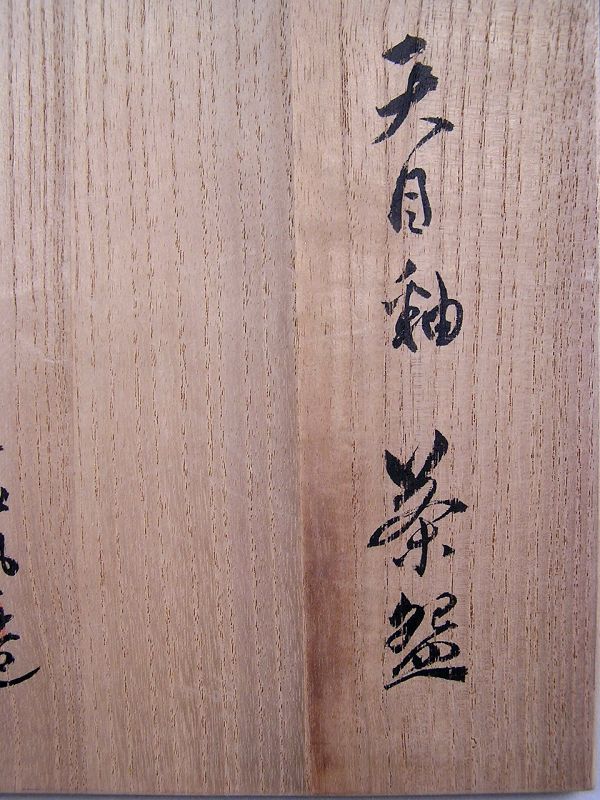 天目釉 茶盌
造